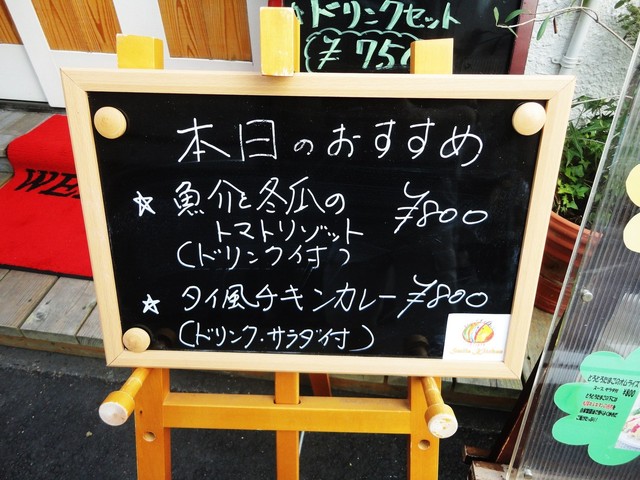 ドリンクセット
¥75
本日のおすすめ
☆ 魚介と冬瓜の ¥800
トマトリゾット
(ドリンク付)
☆ タイ風チキンカレー ¥800
(ドリンク・サラダ付)
WEL